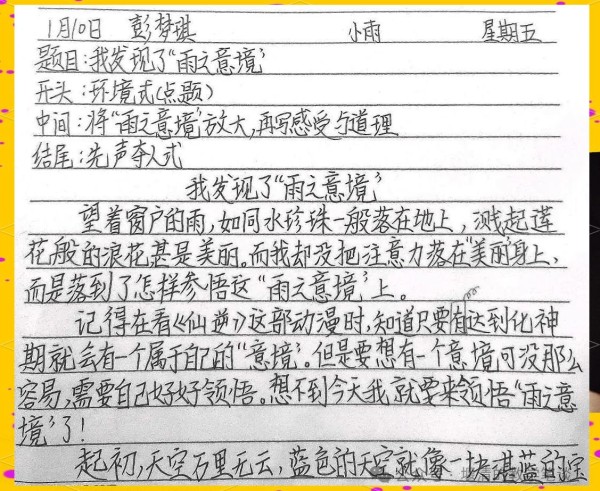 1月10日 彭梦琪 小雨 星期五
题目:我发现了“雨之意境”
开头:环境式(点题)
中间:将“雨之意境”放大,再写感受与道理
结尾:先声夺人式
我发现了“雨之意境”
望着窗户的雨,如同水珍珠一般落在地上,溅起莲
花般的浪花甚是美丽。而我却没把注意力落在“美丽”身上,
而是落到了怎样参悟这“雨之意境”上。
记得在看《仙逆》这部动漫时,知道只要有达到化神
期就会有一个属于自己的“意境”。但是要想有一个意境可没那么
容易,需要自己好好领悟。想不到今天我就要来领悟“雨之意
境”了!
起初,天空万里无云,蓝色的天空就像一块湛蓝的宝